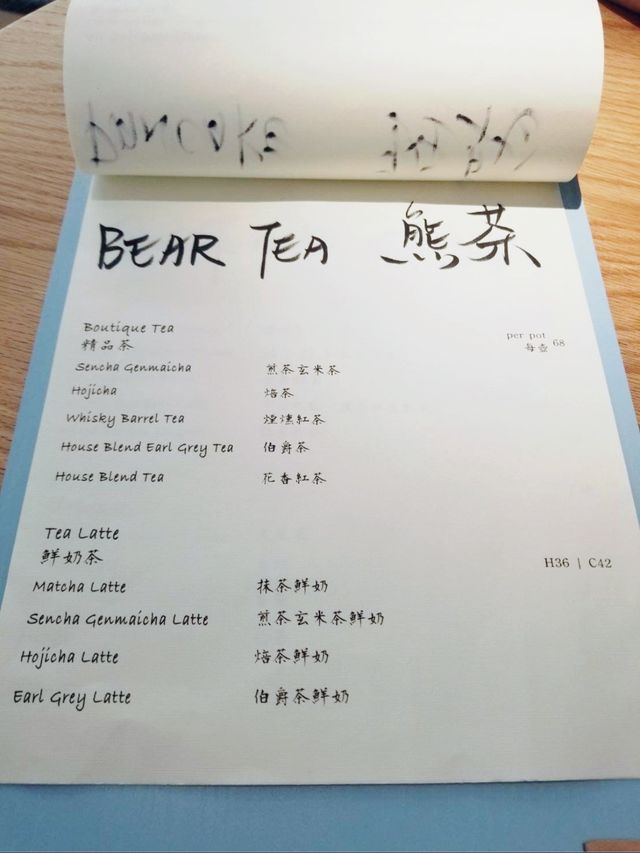 PANCAKE
BEAR TEA 熊茶
Boutique Tea
精品茶
per pot
每壺 68
Sencha Genmaicha 煎茶玄米茶
Hojicha 焙茶
Whisky Barrel Tea 煙燻紅茶
House Blend Earl Grey Tea 伯爵茶
House Blend Tea 花香紅茶
Tea Latte
鮮奶茶
H36 | C42
Matcha Latte 抹茶鮮奶
Sencha Genmaicha Latte 煎茶玄米茶鮮奶
Hojicha Latte 焙茶鮮奶
Earl Grey Latte 伯爵茶鮮奶